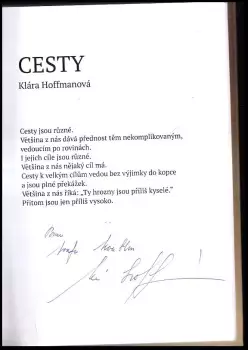 CESTY
Klára Hoffmanová
Cesty jsou různé.
Většina z nás dává přednost těm nekomplikovaným,
vedoucím po rovinách.
I jejich cíle jsou různé.
Většina z nás nějaký cíl má.
Cesty k velkým cílům vedou bez výjimky do kopce
a jsou plné překážek.
Většina z nás říká: „Ty hrozny jsou příliš kyselé.“
Přitom jsou jen příliš vysoko.